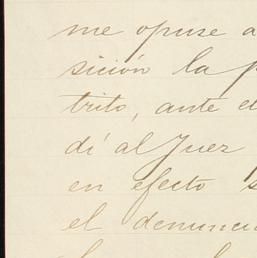 me opuse a
sición la p
trito, ante el
dí al Juez
en efecto s
el denunci